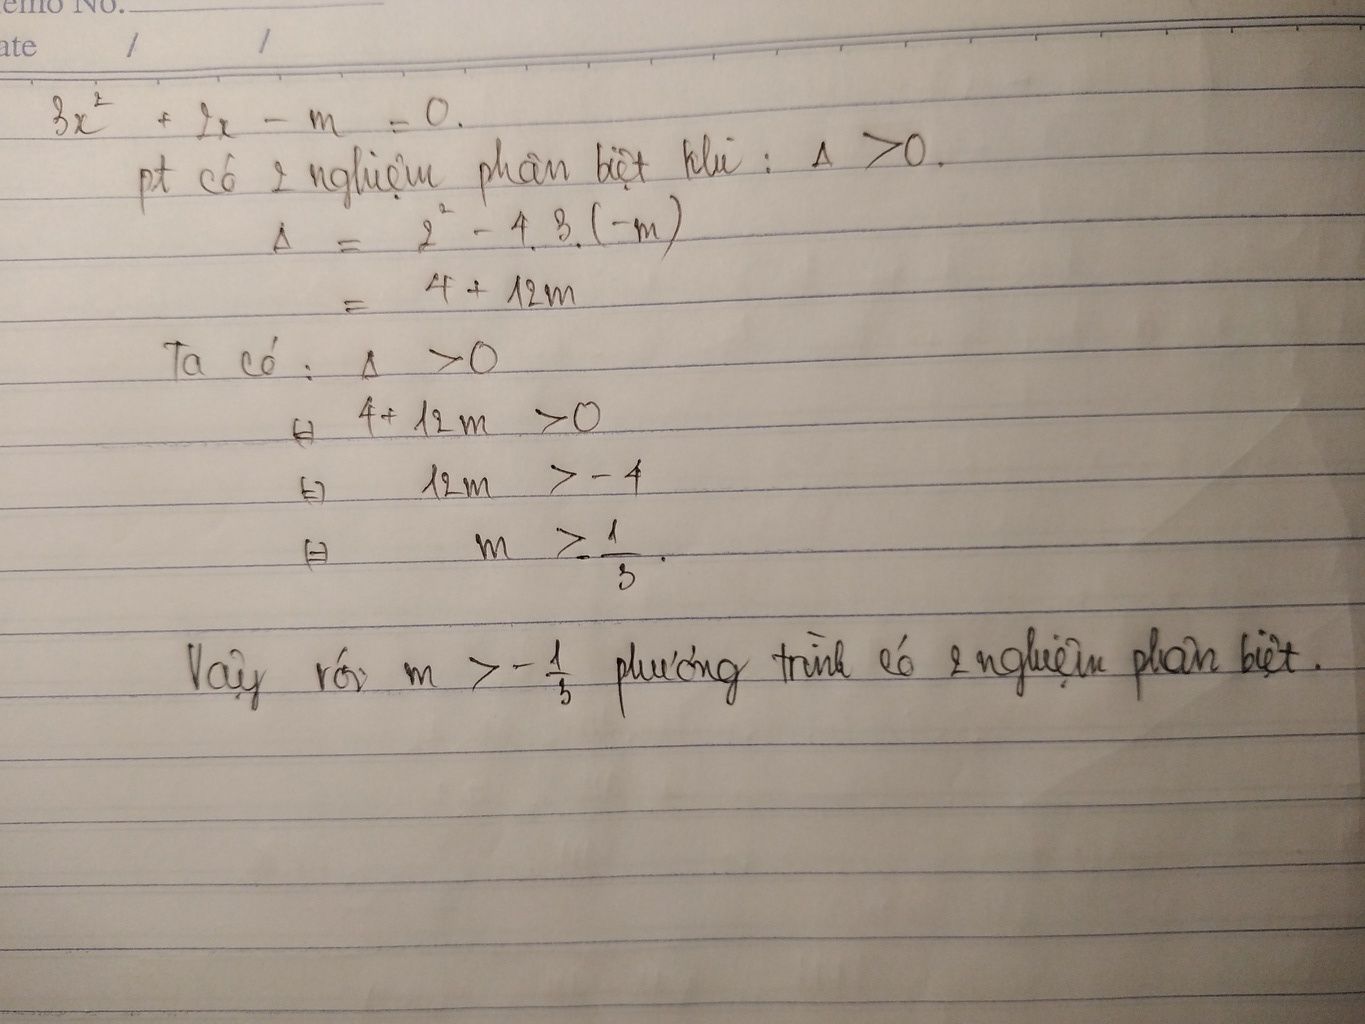 emo No.
ate / /
3x² + 2x - m = 0.
pt có 2 nghiệm phân biệt khi : Δ > 0.
Δ = 2² - 4.3.(-m)
= 4 + 12m
Ta có : Δ > 0
⇔ 4 + 12m > 0
⇔ 12m > -4
⇔ m > -1/3.
Vậy với m > -1/3 phương trình có 2 nghiệm phân biệt.